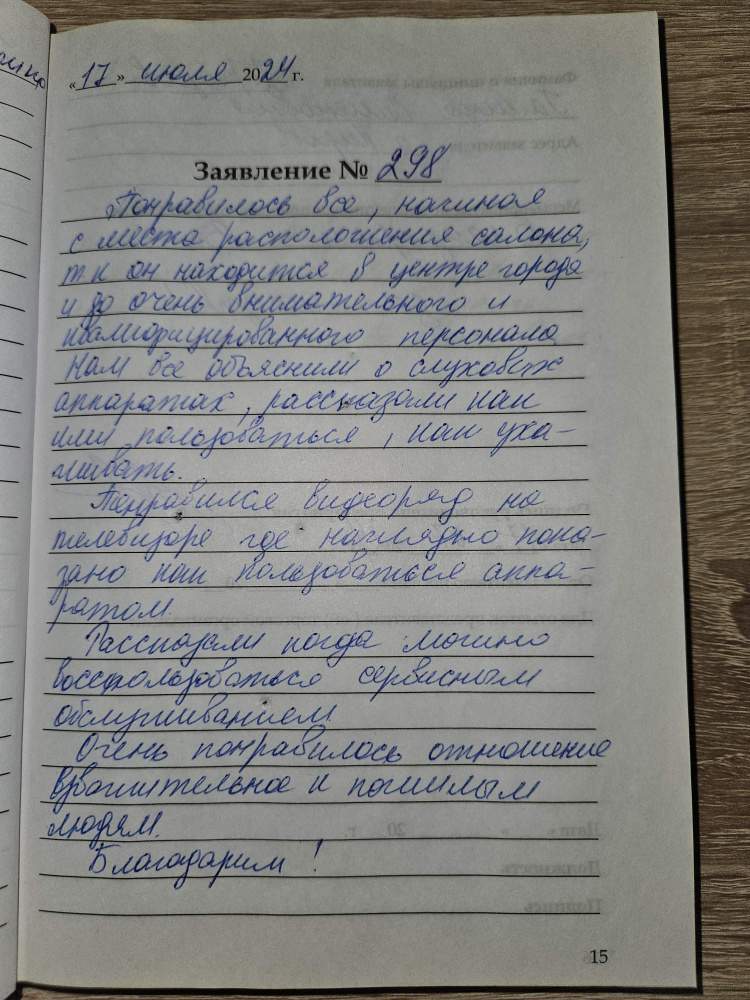 «17» июля 2024 г.
Заявление № 298
Понравилось все, начиная
с места расположения салона,
тк он находится в центре города
и до очень внимательного и
квалифицированного персонала
Нам все объяснили о слуховых
аппаратах, рассказали как
ими пользоваться, как уха-
живать.
Понравился видеоряд на
телевизоре где наглядно пока-
зано как пользоваться аппа-
ратом.
Рассказали когда можно
воспользоваться сервисным
обслуживанием
Очень понравилось отношение
уважительное к пожилым
людям.
Благодарим!
15